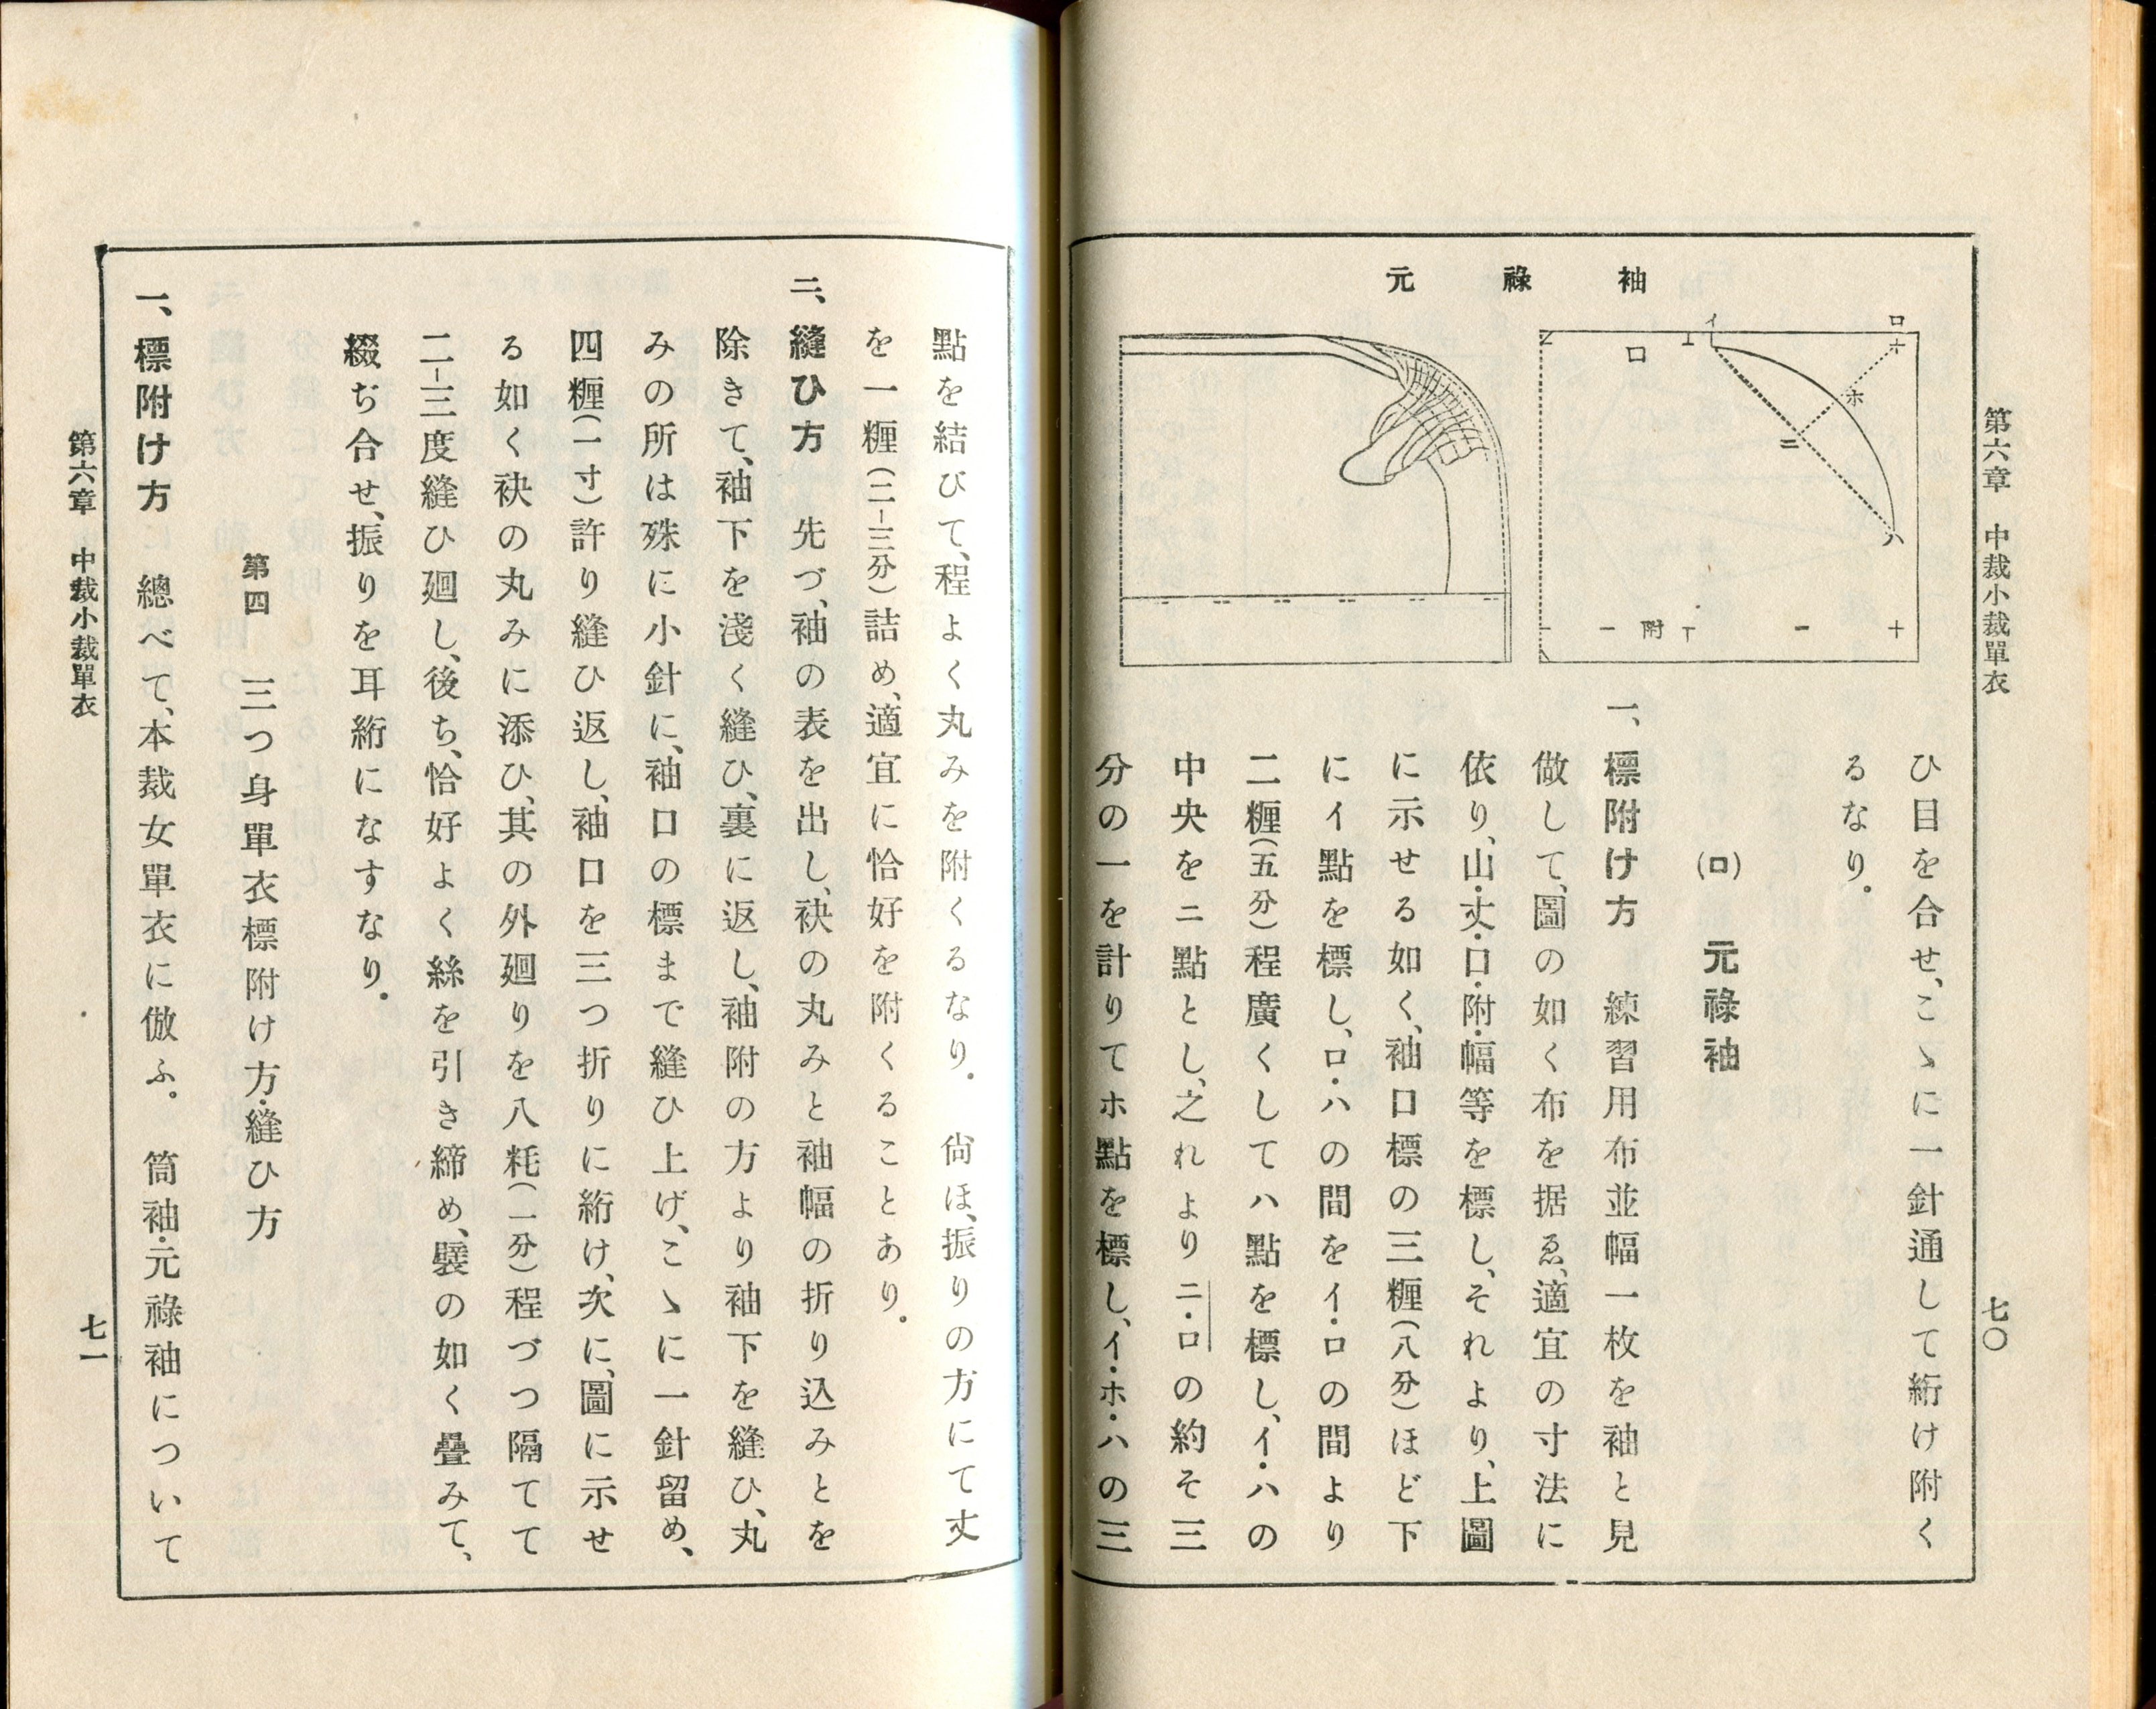 第六章　中裁小裁單衣
七〇
ひ目を合せ、こゝに一針通して絎け附く
るなり。
(ロ)　元祿袖
一、標附け方　練習用布並幅一枚を袖と見
做して、圖の如く布を据ゑ、適宜の寸法に
依り、山・丈・口・附・幅等を標し、それより、上圖
に示せる如く、袖口標の三糎(八分)ほど下
にイ點を標し、ロ・ハの間をイ・ロの間より
二糎(五分)程廣くしてハ點を標し、イ・ハの
中央をニ點とし、之れよりニ・ロの約そ三
分の一を計りてホ點を標し、イ・ホ・ハの三
元祿袖
ロ
イ
口
ホ
ニ
ハ
附
點を結びて、程よく丸みを附くるなり。　尙ほ、振りの方にて丈
を一糎(二-三分)詰め、適宜に恰好を附くることあり。
二、縫ひ方　先づ、袖の表を出し、袂の丸みと袖幅の折り込みとを
除きて、袖下を淺く縫ひ、裏に返し、袖附の方より袖下を縫ひ、丸
みの所は殊に小針に、袖口の標まで縫ひ上げ、こゝに一針留め、
四糎(一寸)許り縫ひ返し、袖口を三つ折りに絎け、次に、圖に示せ
る如く袂の丸みに添ひ、其の外廻りを八粍(一分)程づつ隔てて
二-三度縫ひ廻し、後ち、恰好よく絲を引き締め、襞の如く疊みて、
綴ぢ合せ、振りを耳絎になすなり。
第四　三つ身單衣標附け方・縫ひ方
一、標附け方　總べて、本裁女單衣に倣ふ。　筒袖・元祿袖について
第六章　中裁小裁單衣
七一